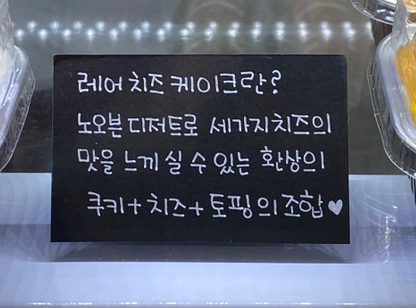 레어 치즈 케이크란?
노오븐 디저트로 세가지 치즈의
맛을 느끼실 수 있는 환상의
쿠키+치즈+토핑의 조합♥